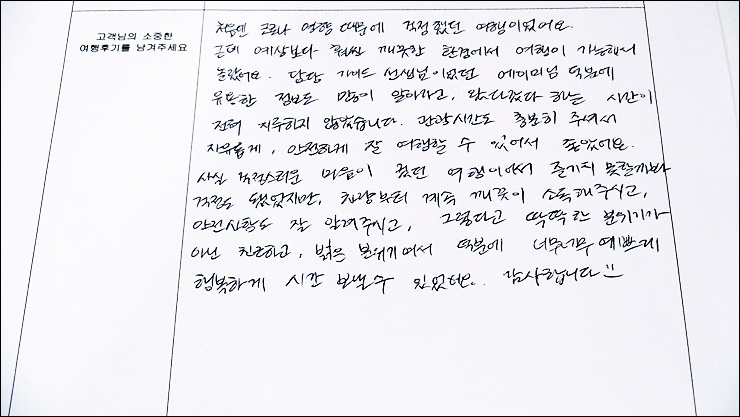 고객님의 소중한
여행후기를 남겨주세요
처음엔 코로나 영향 때문에 걱정했던 여행이었어요.
근데 예상보다 훨씬 깨끗한 환경에서 여행이 가능해서
놀랐어요. 담당 가이드 선생님이었던 에미미님 덕분에
유용한 정보도 많이 알아가고, 왔다갔다 하는 시간이
전혀 지루하지 않았습니다. 관광시간도 충분히 주셔서
자유롭게, 안전하게 잘 여행할 수 있어서 좋았어요.
사실 걱정스러운 마음이 컸던 여행이어서 즐기지 못할까봐
걱정도 됐었지만, 차량부터 계속 깨끗이 소독해주시고,
안전사항도 잘 알려주시고, 그렇다고 딱딱한 분위기가
아닌 친근하고, 밝은 분위기여서 덕분에 너무너무 예쁘게
행복하게 시간 보낼 수 있었어요. 감사합니다